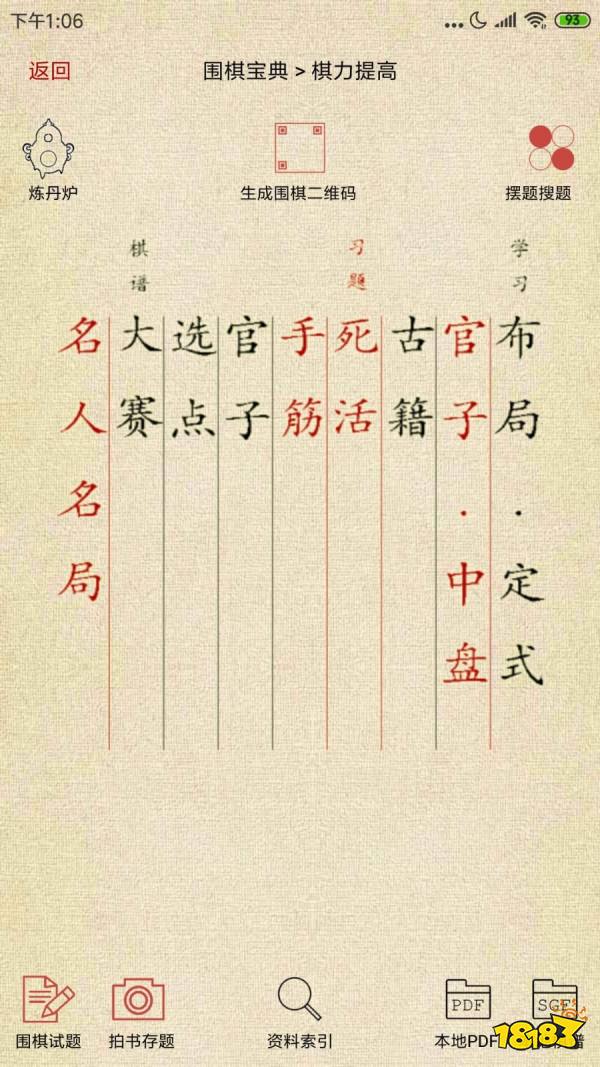 下午1:06
93
返回
围棋宝典 > 棋力提高
炼丹炉
生成围棋二维码
摆题搜题
学习
布局·定式
官子·中盘
古籍
习题
死活
手筋
官子
选点
棋谱
大赛
名人名局
围棋试题
拍书存题
资料索引
PDF
本地PDF
SGF
谱
18183